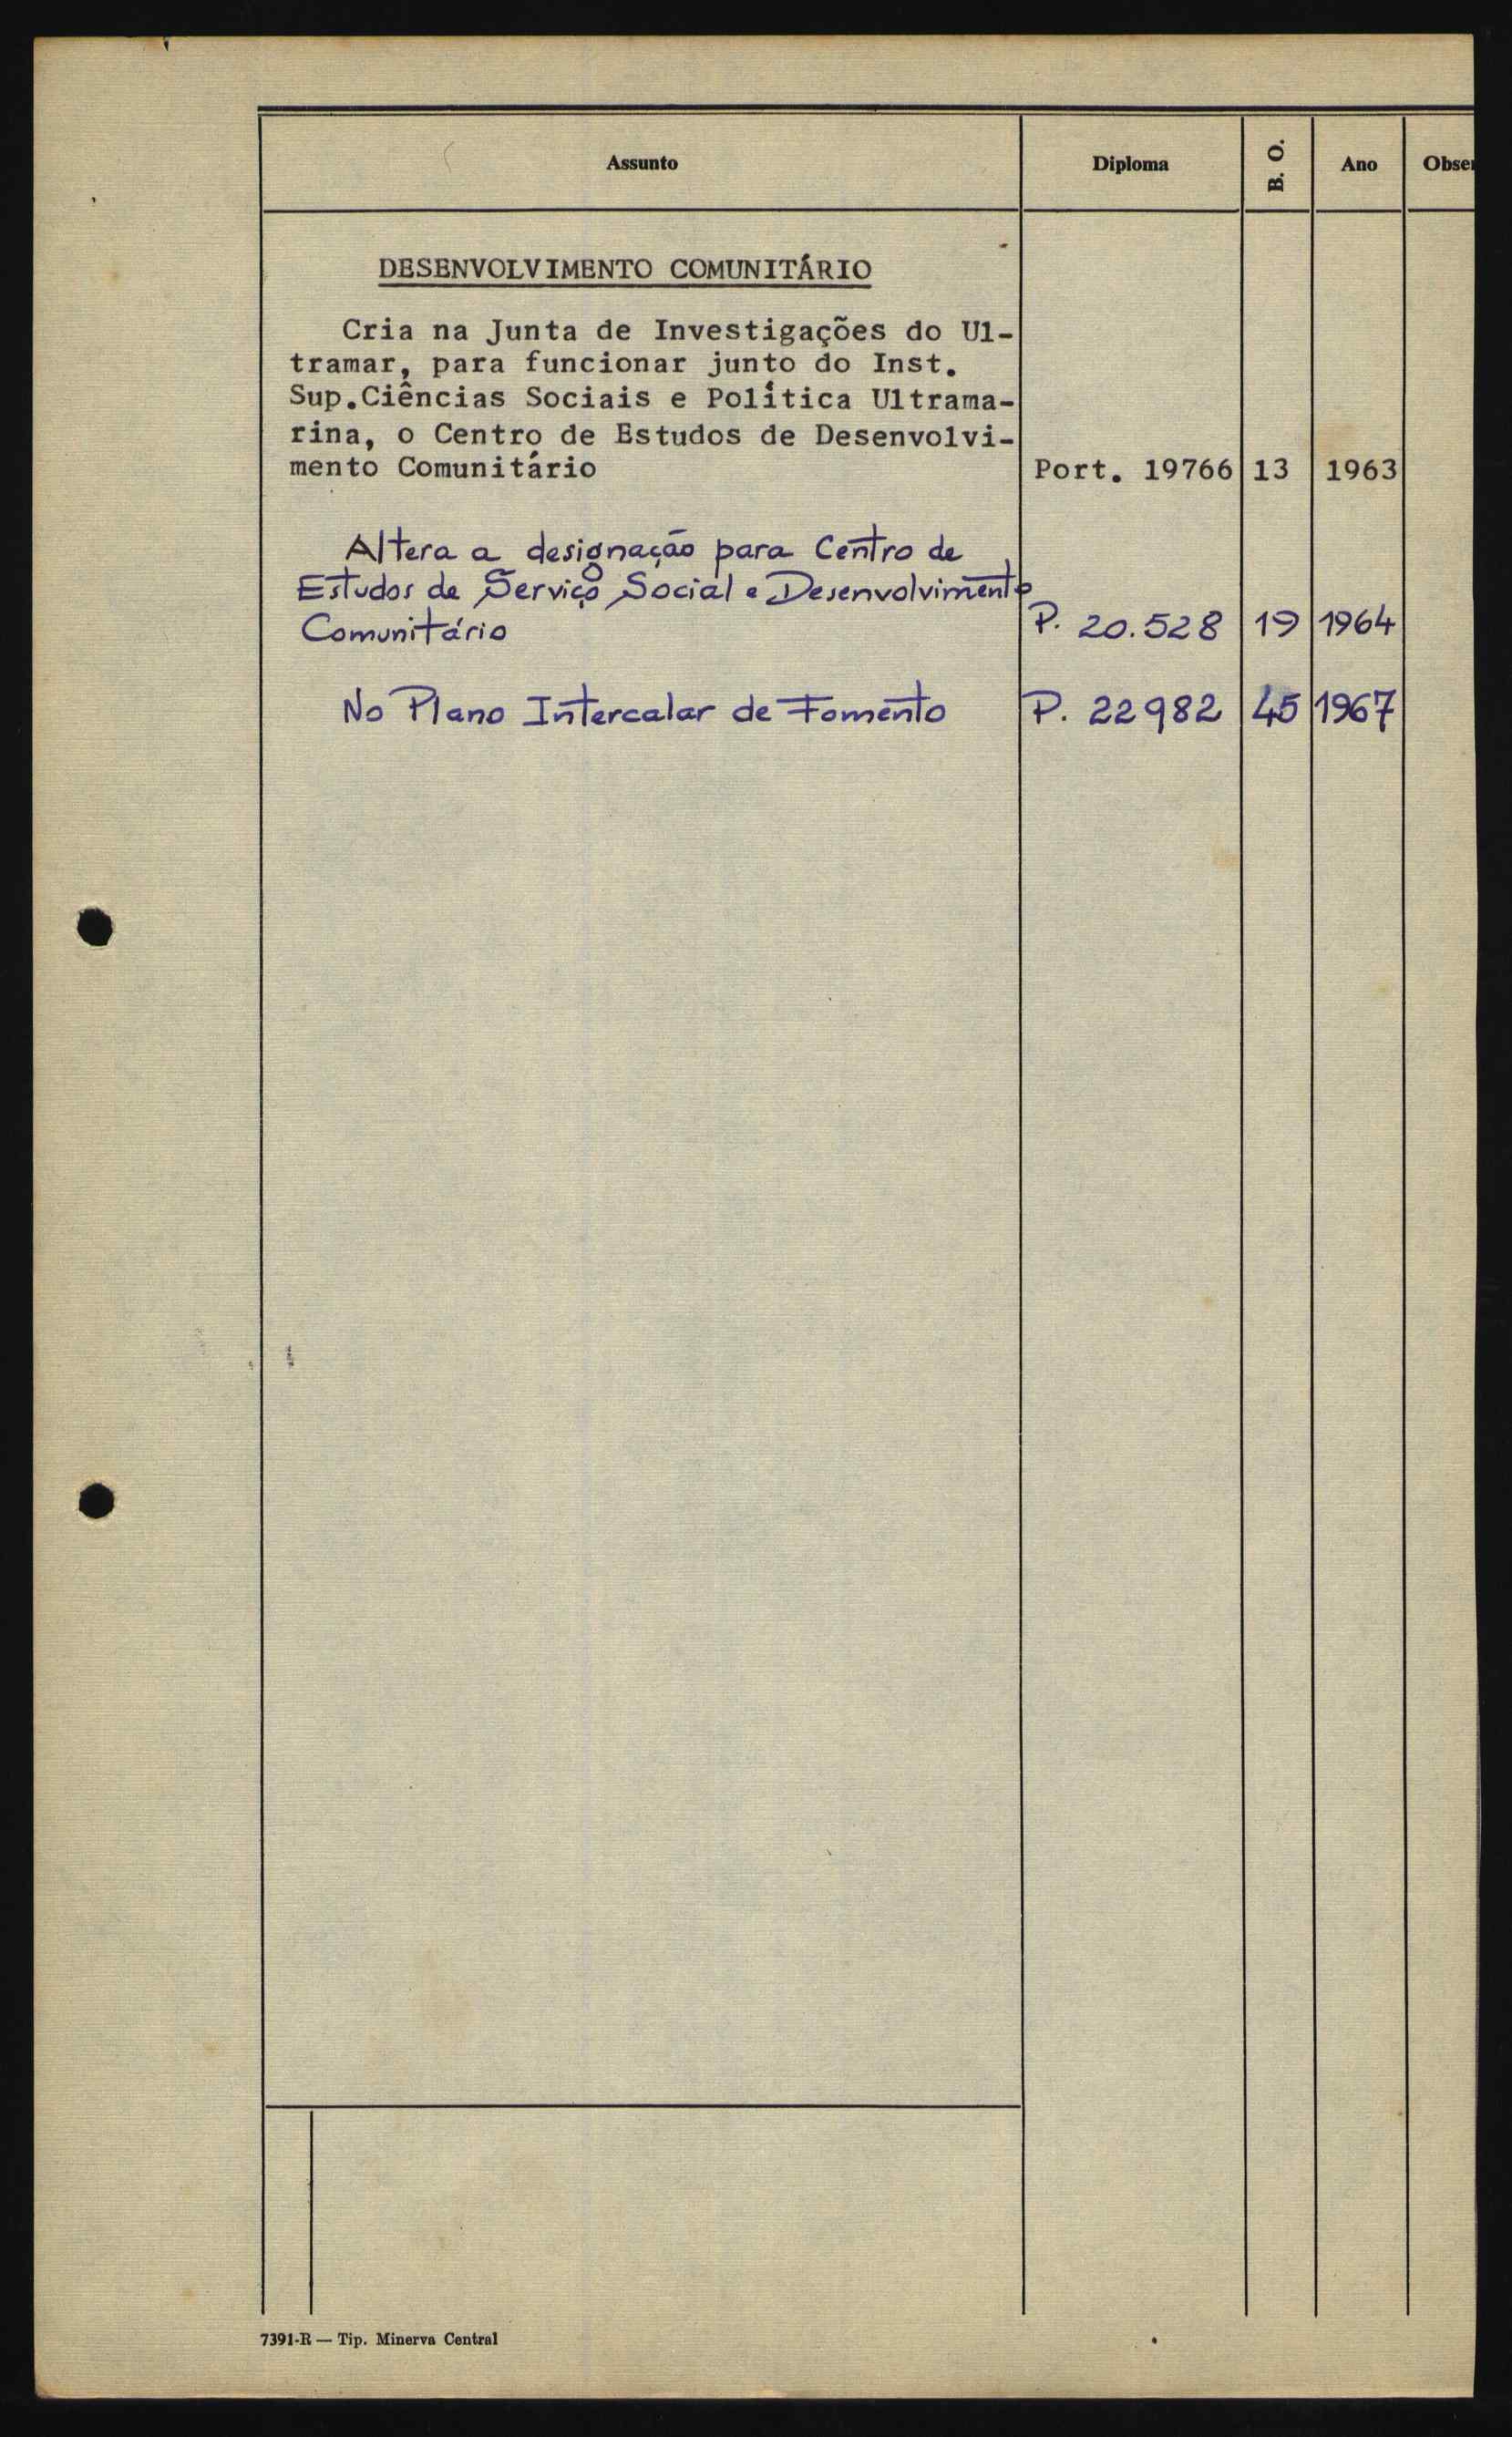 Assunto Diploma B. O. Ano Obser
DESENVOLVIMENTO COMUNITÁRIO
Cria na Junta de Investigações do Ul-
tramar, para funcionar junto do Inst.
Sup.Ciências Sociais e Política Ultrama-
rina, o Centro de Estudos de Desenvolvi-
mento Comunitário Port. 19766 13 1963
Altera a designação para Centro de
Estudos de Serviço Social e Desenvolvimento
Comunitário P. 20.528 19 1964
No Plano Intercalar de Fomento P. 22982 45 1967
7391-R — Tip. Minerva Central